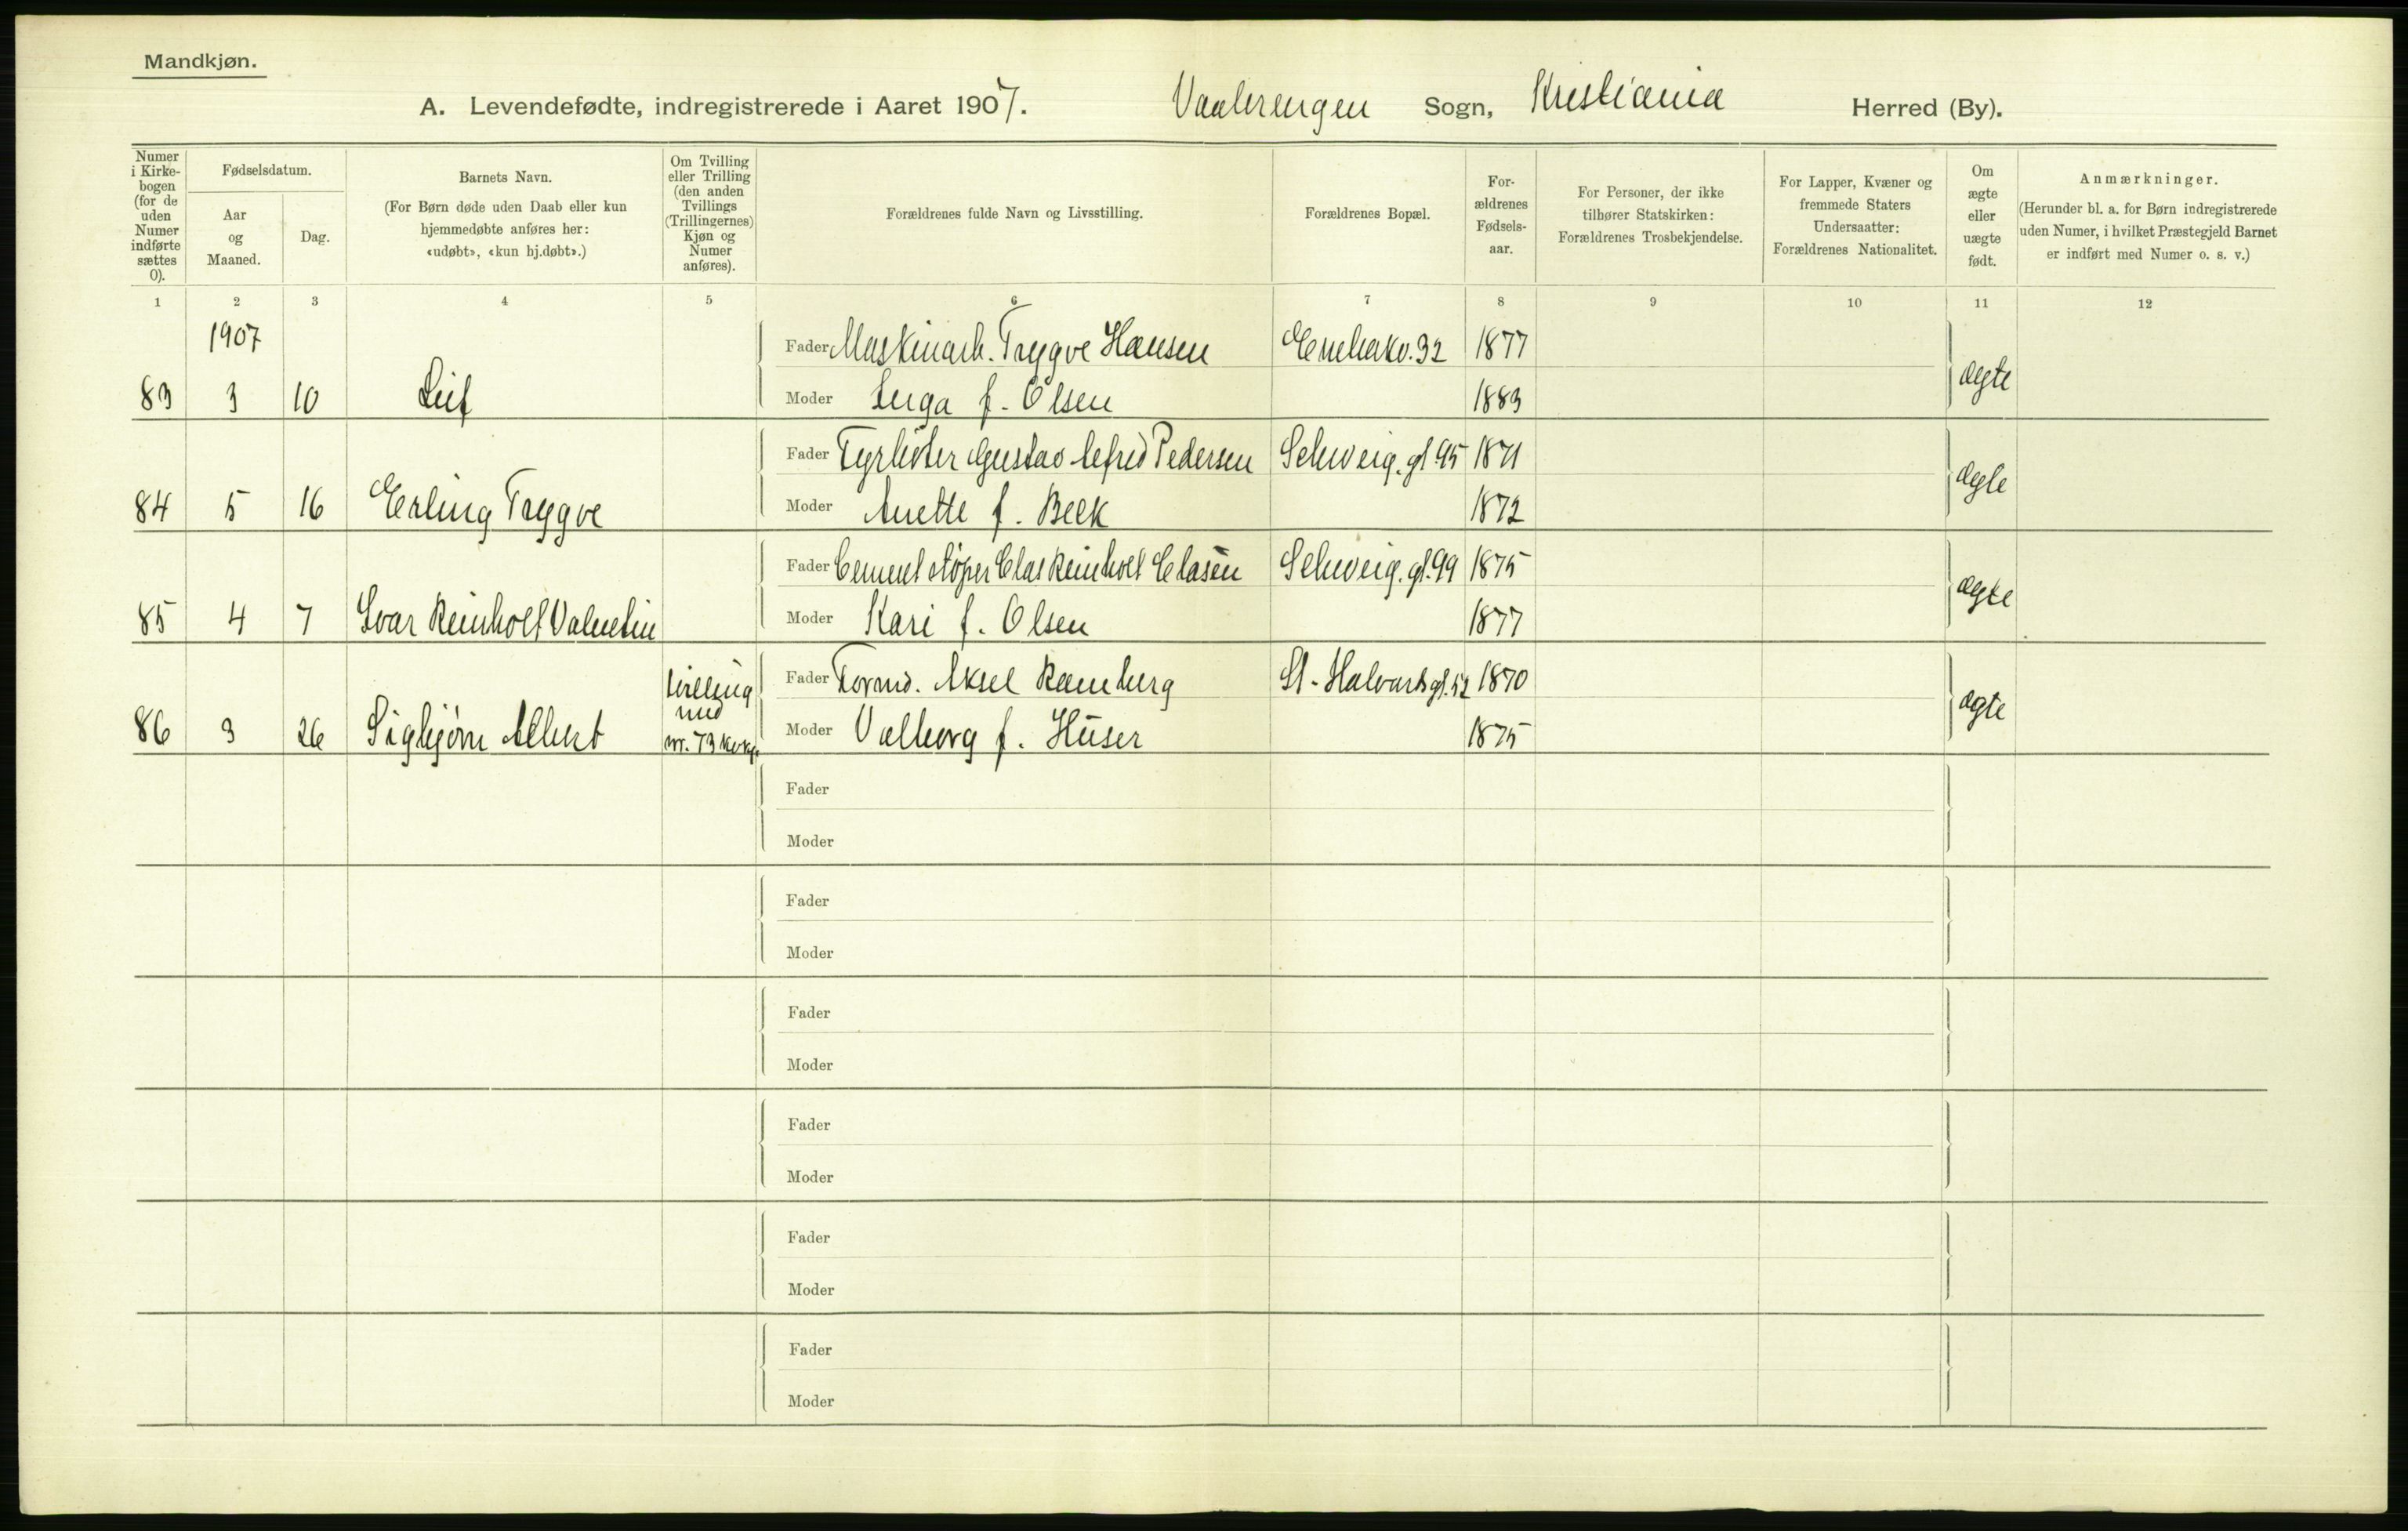 Mandkjøn.
A. Levendefødte, indregistrerede i Aaret 1907. Vaalerengen Sogn, Kristiania Herred (By).
Numer i Kirkebogen (for de uden Numer indførte sættes 0).
Fødselsdatum.
Aar og Maaned.
Dag.
Barnets Navn.
(For Børn døde uden Daab eller kun hjemmedøbte anføres her: «udøbt», «kun hj.døbt».)
Om Tvilling eller Trilling (den anden Tvillings (Trillingernes) Kjøn og Numer anføres).
Forældrenes fulde Navn og Livsstilling.
Forældrenes Bopæl.
Forældrenes Fødselsaar.
For Personer, der ikke tilhører Statskirken: Forældrenes Trosbekjendelse.
For Lapper, Kvæner og fremmede Staters Undersaatter: Forældrenes Nationalitet.
Om ægte eller uægte født.
Anmærkninger.
(Herunder bl. a. for Børn indregistrerede uden Numer, i hvilket Præstegjeld Barnet er indført med Numer o. s. v.)
1 2 3 4 5 6 7 8 9 10 11 12
1907
Fader Maskinarb. Trygve Hansen 1877
83 3 10 Leif Moder Inga f. Olsen 1883 ægte
Fader Fyrbøter Gustav Alfred Pedersen Schweig.gt 95 1871
84 5 16 Erling Trygve Moder Anette f. Beck 1872 ægte
Fader Cementstøper Clas Reinholt Clasen Schweig.gt.99 1875
85 4 7 Ivar Reinholt Valentin Moder Kari f. Olsen 1877 ægte
Fader Formd. Aksel Ramberg St. Halvardsgt.52 1870
86 3 26 Sigbjørn Albert tvilling med nr. 73 kvkj. Moder Valborg f. Huser 1875 ægte
Fader
Moder
Fader
Moder
Fader
Moder
Fader
Moder
Fader
Moder
Fader
Moder